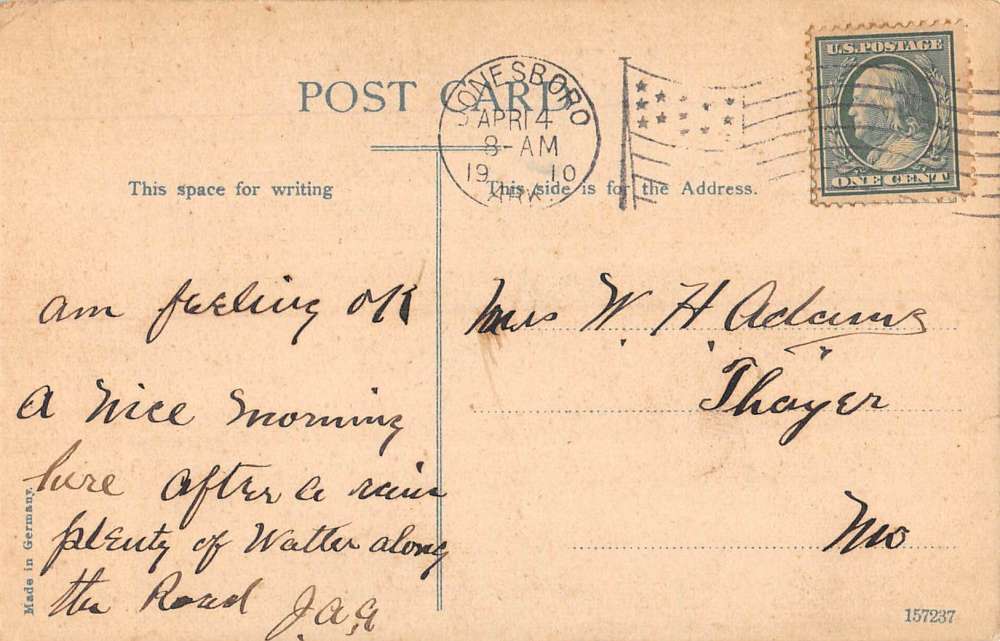 POST CARD
JONESBORO
APR 14
8-AM
19 10
ARK.
U.S. POSTAGE
ONE CENT
This space for writing
This side is for the Address.
am feeling OK
A Nice morning
here after a rain
plenty of Watter along
the Road J.A.A
Mrs W. H. Adams
Thayer
Mo
Made in Germany.
157237